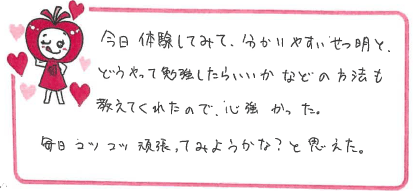 今日体験してみて、分かりやすいせつ明と、
どうやって勉強したらいいかなどの方法も
教えてくれたので、心強かった。
毎日コツコツ頑張ってみようかな？と思えた。